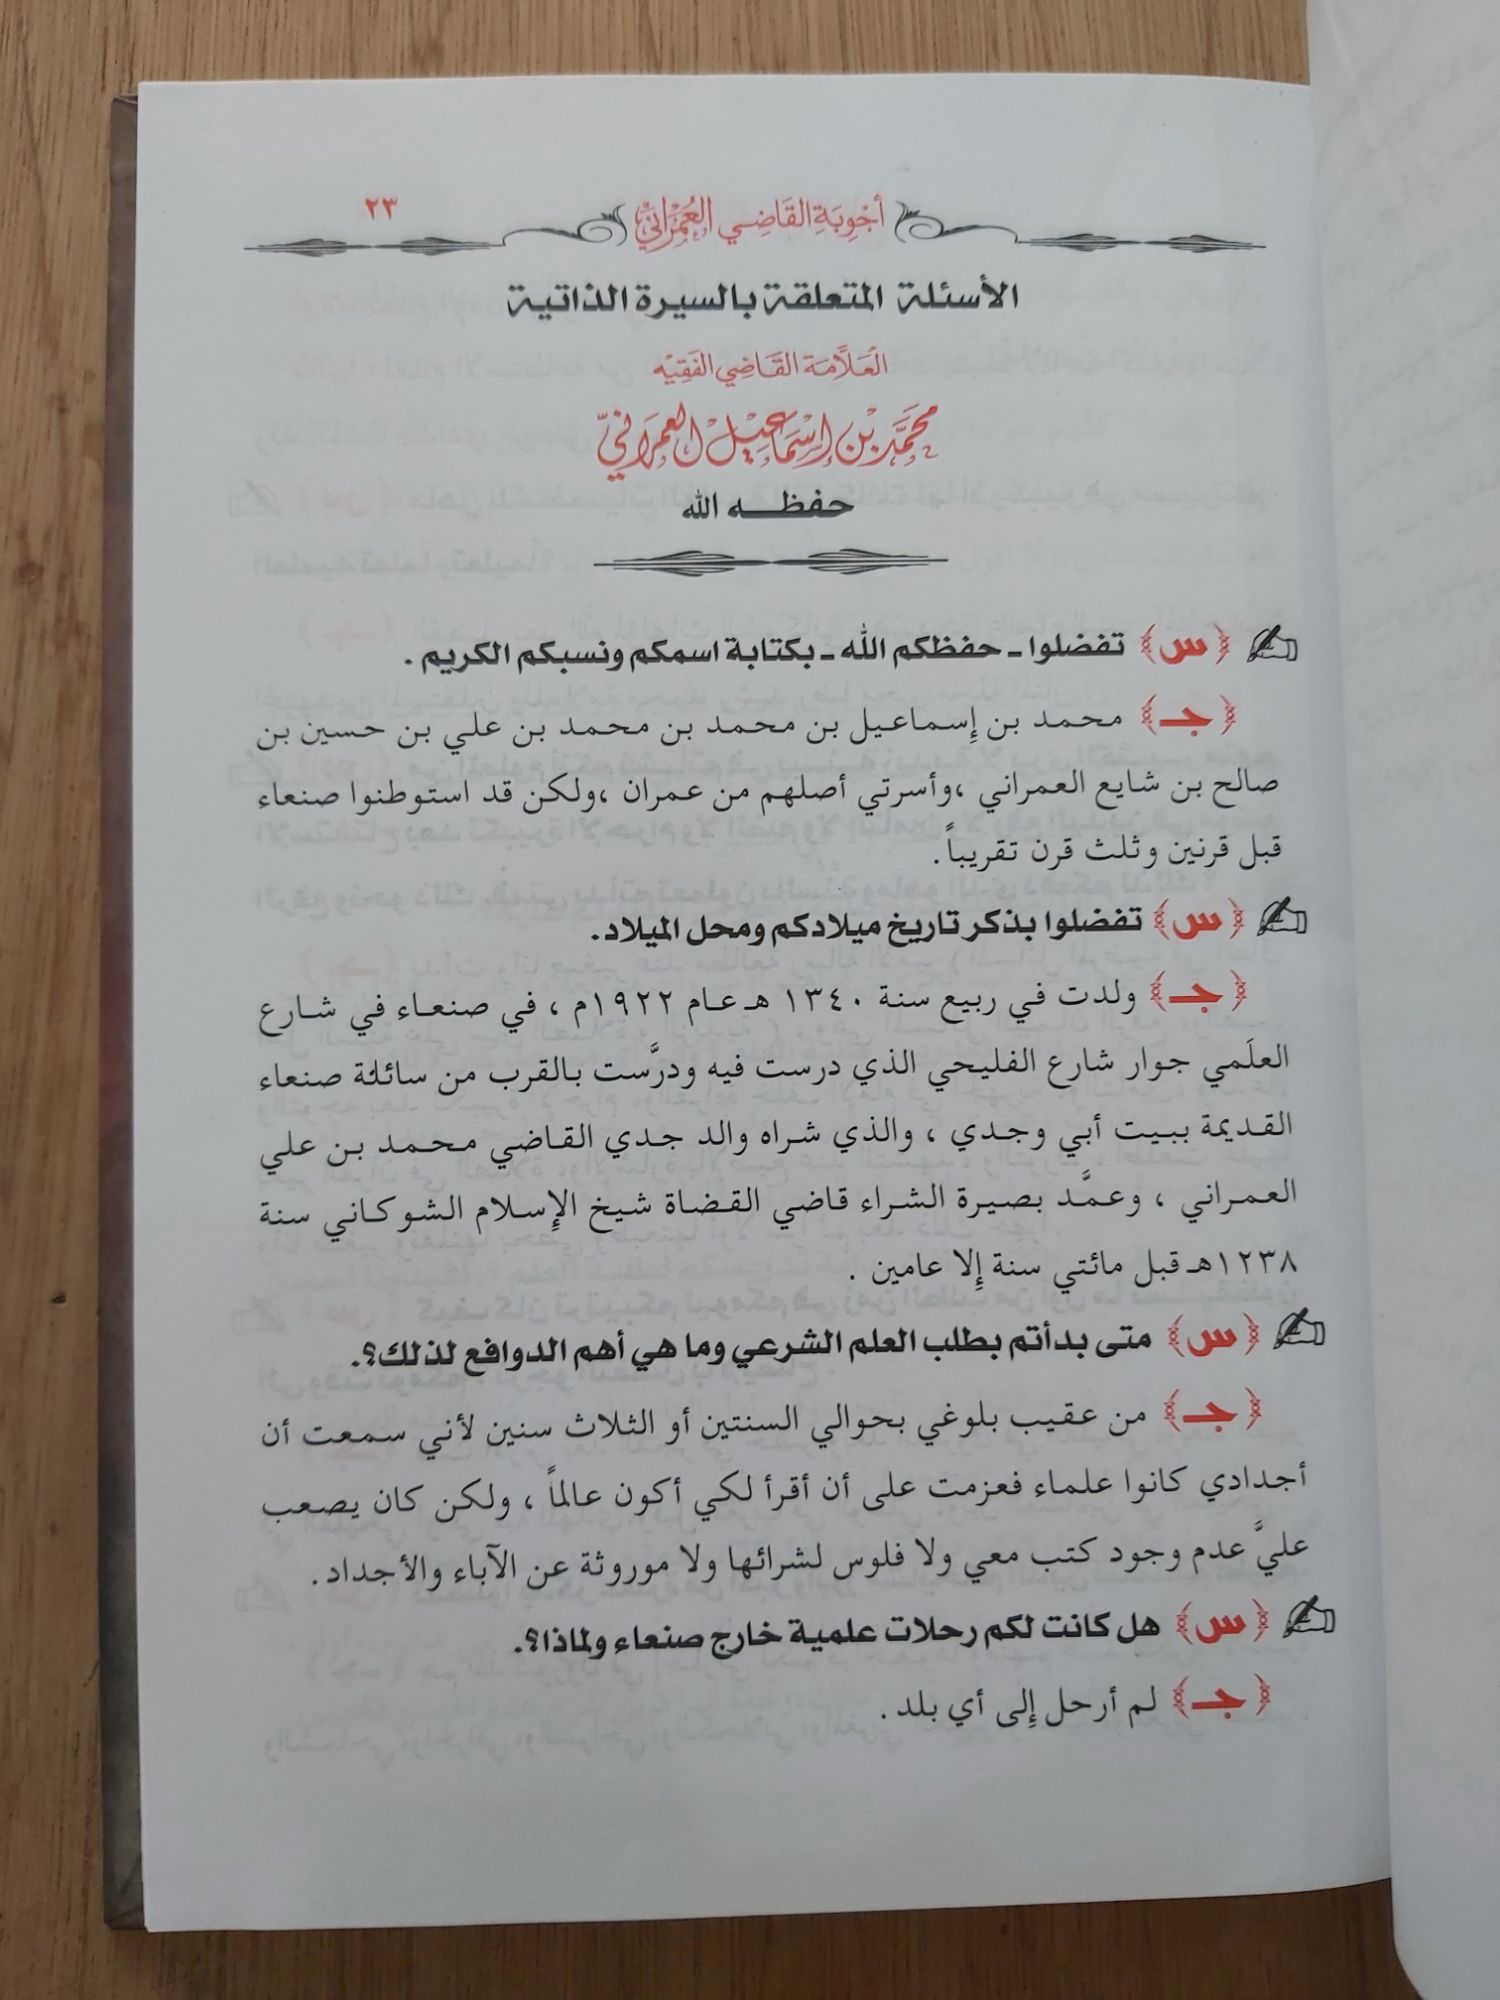 أجْوِبَةِ القَاضِي العُمْرَانِيْ ٢٣
الأسئلة المتعلقة بالسيرة الذاتية
العَلاَّمَة القَاضِي الفَقِيْه
محَمَّد بْن إسْمَاعيْل العمرَاني
حفظه الله
﴿س﴾ تفضلوا ـ حفظكم الله ـ بكتابة اسمكم ونسبكم الكريم .
﴿جـ﴾ محمد بن إسماعيل بن محمد بن محمد بن علي بن حسين بن
صالح بن شايع العمراني ،وأسرتي أصلهم من عمران ،ولكن قد استوطنوا صنعاء
قبل قرنين وثلث قرن تقريباً .
﴿س﴾ تفضلوا بذكر تاريخ ميلادكم ومحل الميلاد.
﴿جـ﴾ ولدت في ربيع سنة ١٣٤٠ هـ عام ١٩٢٢م ، في صنعاء في شارع
العلَمي جوار شارع الفليحي الذي درست فيه ودرَّست بالقرب من سائلة صنعاء
القديمة ببيت أبي وجدي ، والذي شراه والد جدي القاضي محمد بن علي
العمراني ، وعمَّد بصيرة الشراء قاضي القضاة شيخ الإسلام الشوكاني سنة
١٢٣٨هـ قبل مائتي سنة إلا عامين .
﴿س﴾ متى بدأتم بطلب العلم الشرعي وما هي أهم الدوافع لذلك؟.
﴿جـ﴾ من عقيب بلوغي بحوالي السنتين أو الثلاث سنين لأني سمعت أن
أجدادي كانوا علماء فعزمت على أن أقرأ لكي أكون عالماً ، ولكن كان يصعب
عليَّ عدم وجود كتب معي ولا فلوس لشرائها ولا موروثة عن الآباء والأجداد .
﴿س﴾ هل كانت لكم رحلات علمية خارج صنعاء ولماذا؟.
﴿جـ﴾ لم أرحل إلى أي بلد .